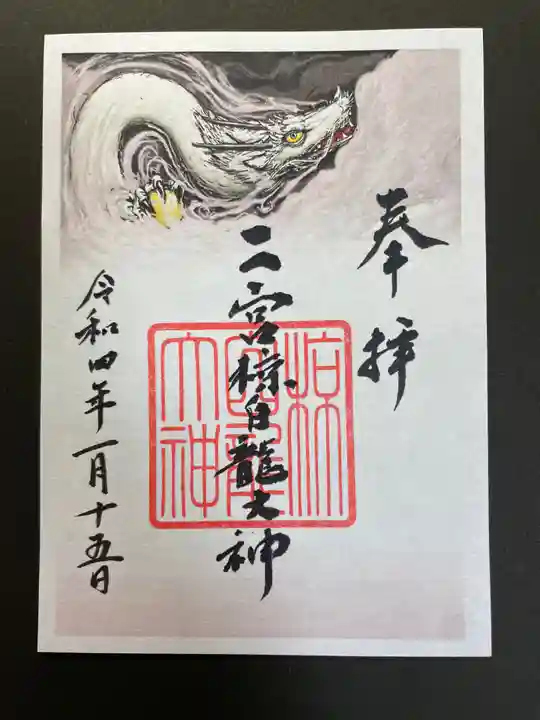 奉拝
二宮椋白龍大神
令和四年一月十五日
椋
白龍
大神